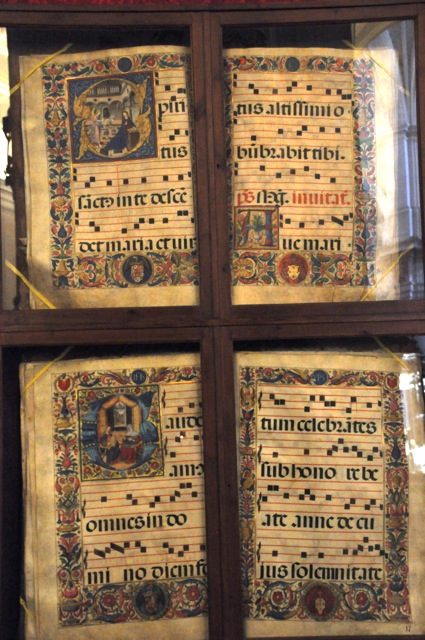 tus
sãctꝰ in te descẽ
det maria et uir
tus altissimi o
būbrabit tibi.
inuitat.
ue mari
aude
omnes in do
mi no diem fe
tum celebrātes
sub hono re be
ate anne de cu
ius solemnitate